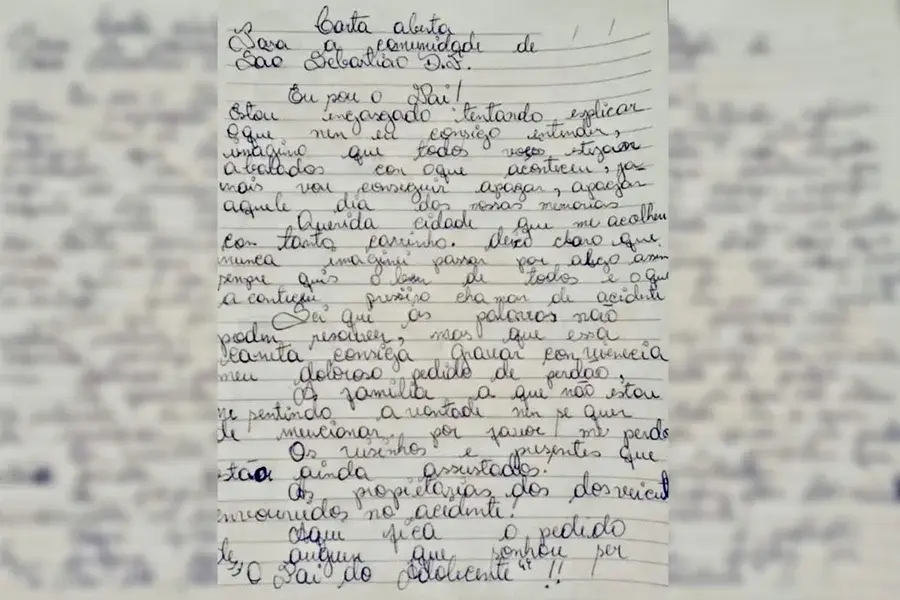 Carta aberta
Para a comunidade de
São Sebastião D.F.
Eu sou o Pai!
Estou engasgado tentando explicar
oque nem eu consigo entender,
imagino que todos voces
abalados com oque aconteceu, ja-
mais vou conseguir apagar, apagar
aquele dia das nossas memorias
Querida cidade que me acolheu
com tanto carinho. deixo claro que
nunca imaginei passar por algo assim
sempre quis o bem de todos e o que
aconteceu preciso chamar de acidente
Sei que as palavras não
podem resolver, mas que essa
carnita consiga gravar
meu doloroso pedido de perdão,
A familia a que não estou
me sentindo a vontade nem se quer
de mencionar por favor me perdo
Os visinhos e presentes que
estão ainda assustados!
As propietarias dos dos veicul
envouvidos no acidente!
Aqui fica o pedido
de auguen que sonhou ser
"O Pai do Adolecente"!!